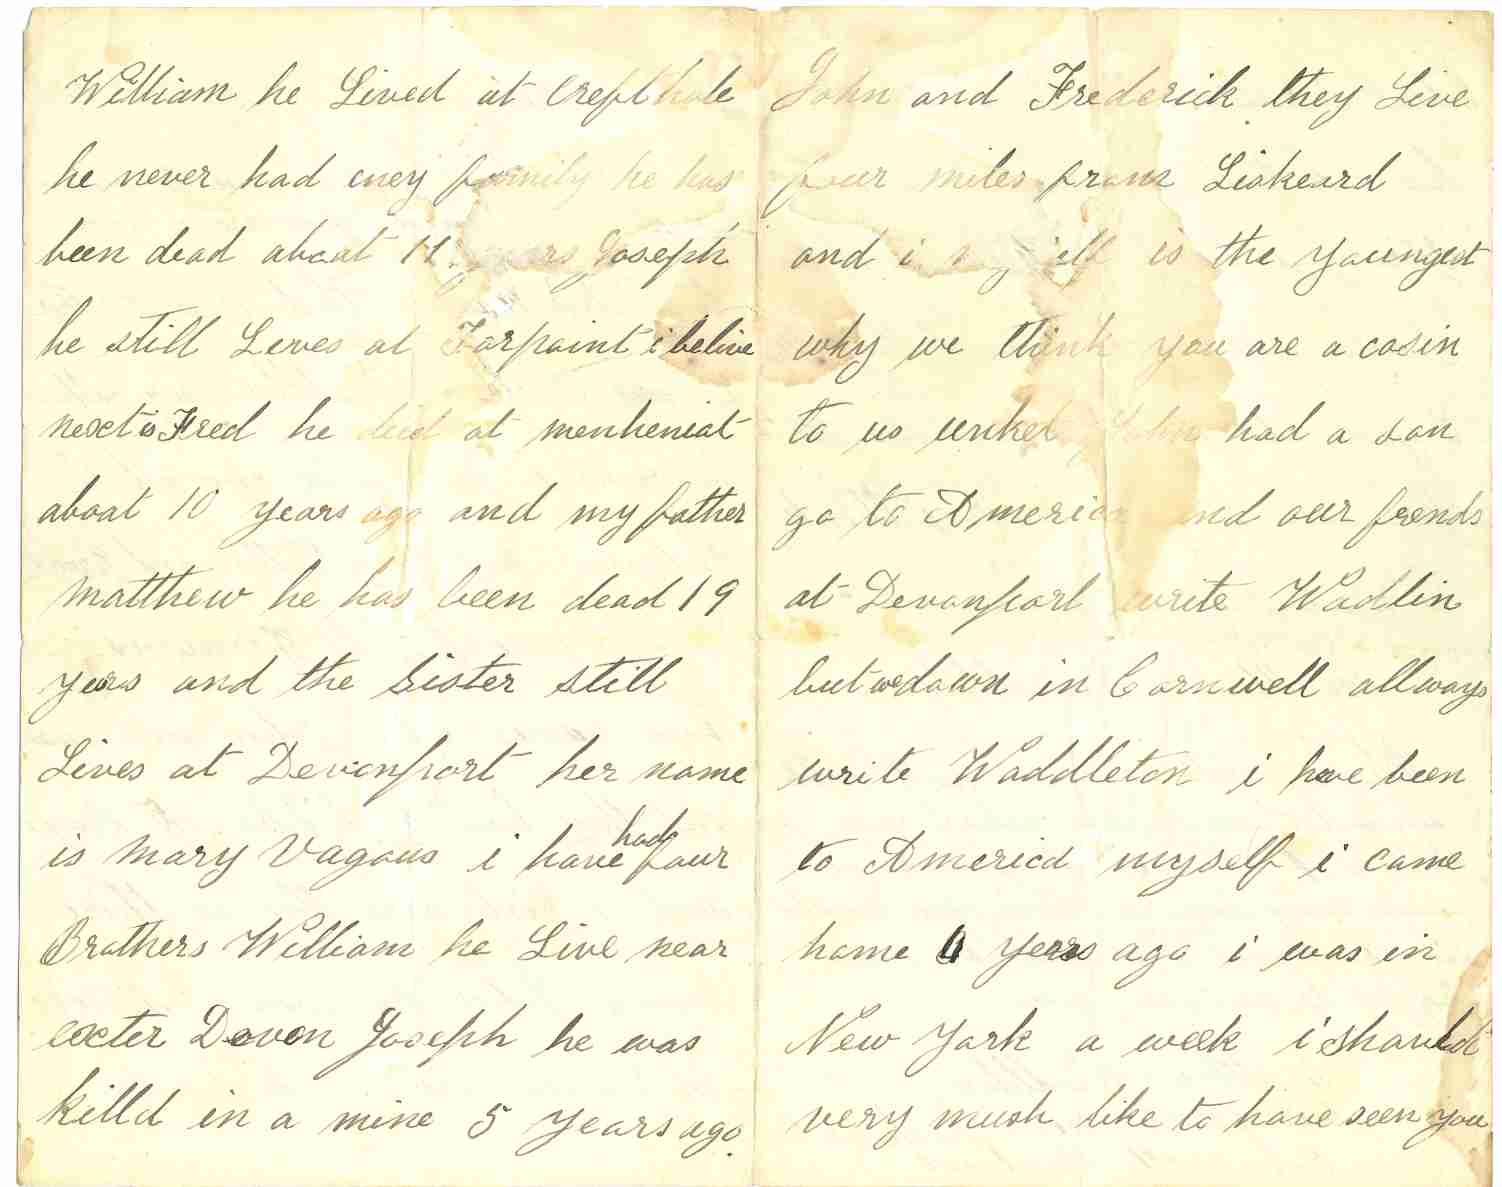 William he Lived at Crefthole
he never had eney family he has
been dead about 11 years Joseph
he still Leves at Torpoint i belive
next is Fred he died at menheniat
about 10 years ago and my father
matthew he has been dead 19
years and the Sister still
Lives at Devonport her name
is mary Vagous i have had four
Brothers William he Live near
exeter Devon Joseph he was
killd in a mine 5 years ago
John and Frederick they Live
four miles from Liskeard
and i my self is the youngest
why we think you are a cosin
to us unkel John had a son
go to America and our frends
at Devonport write Wadlin
but we down in Cornwell allways
write Waddleton i have been
to America myself i came
home years ago i was in
New York a week i should
very mush like to have seen you